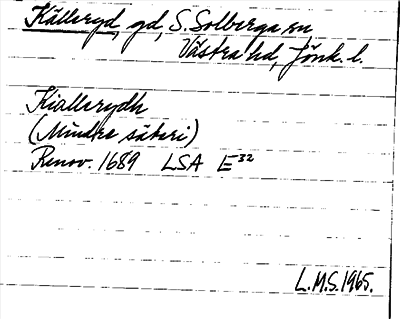 Källeryd, gd, S. Solberga sn,
Västra hd, Jönk. l.
Kiallerydh
(Mindre säteri)
Renov. 1689 LSA E32
L.M.S. 1965.